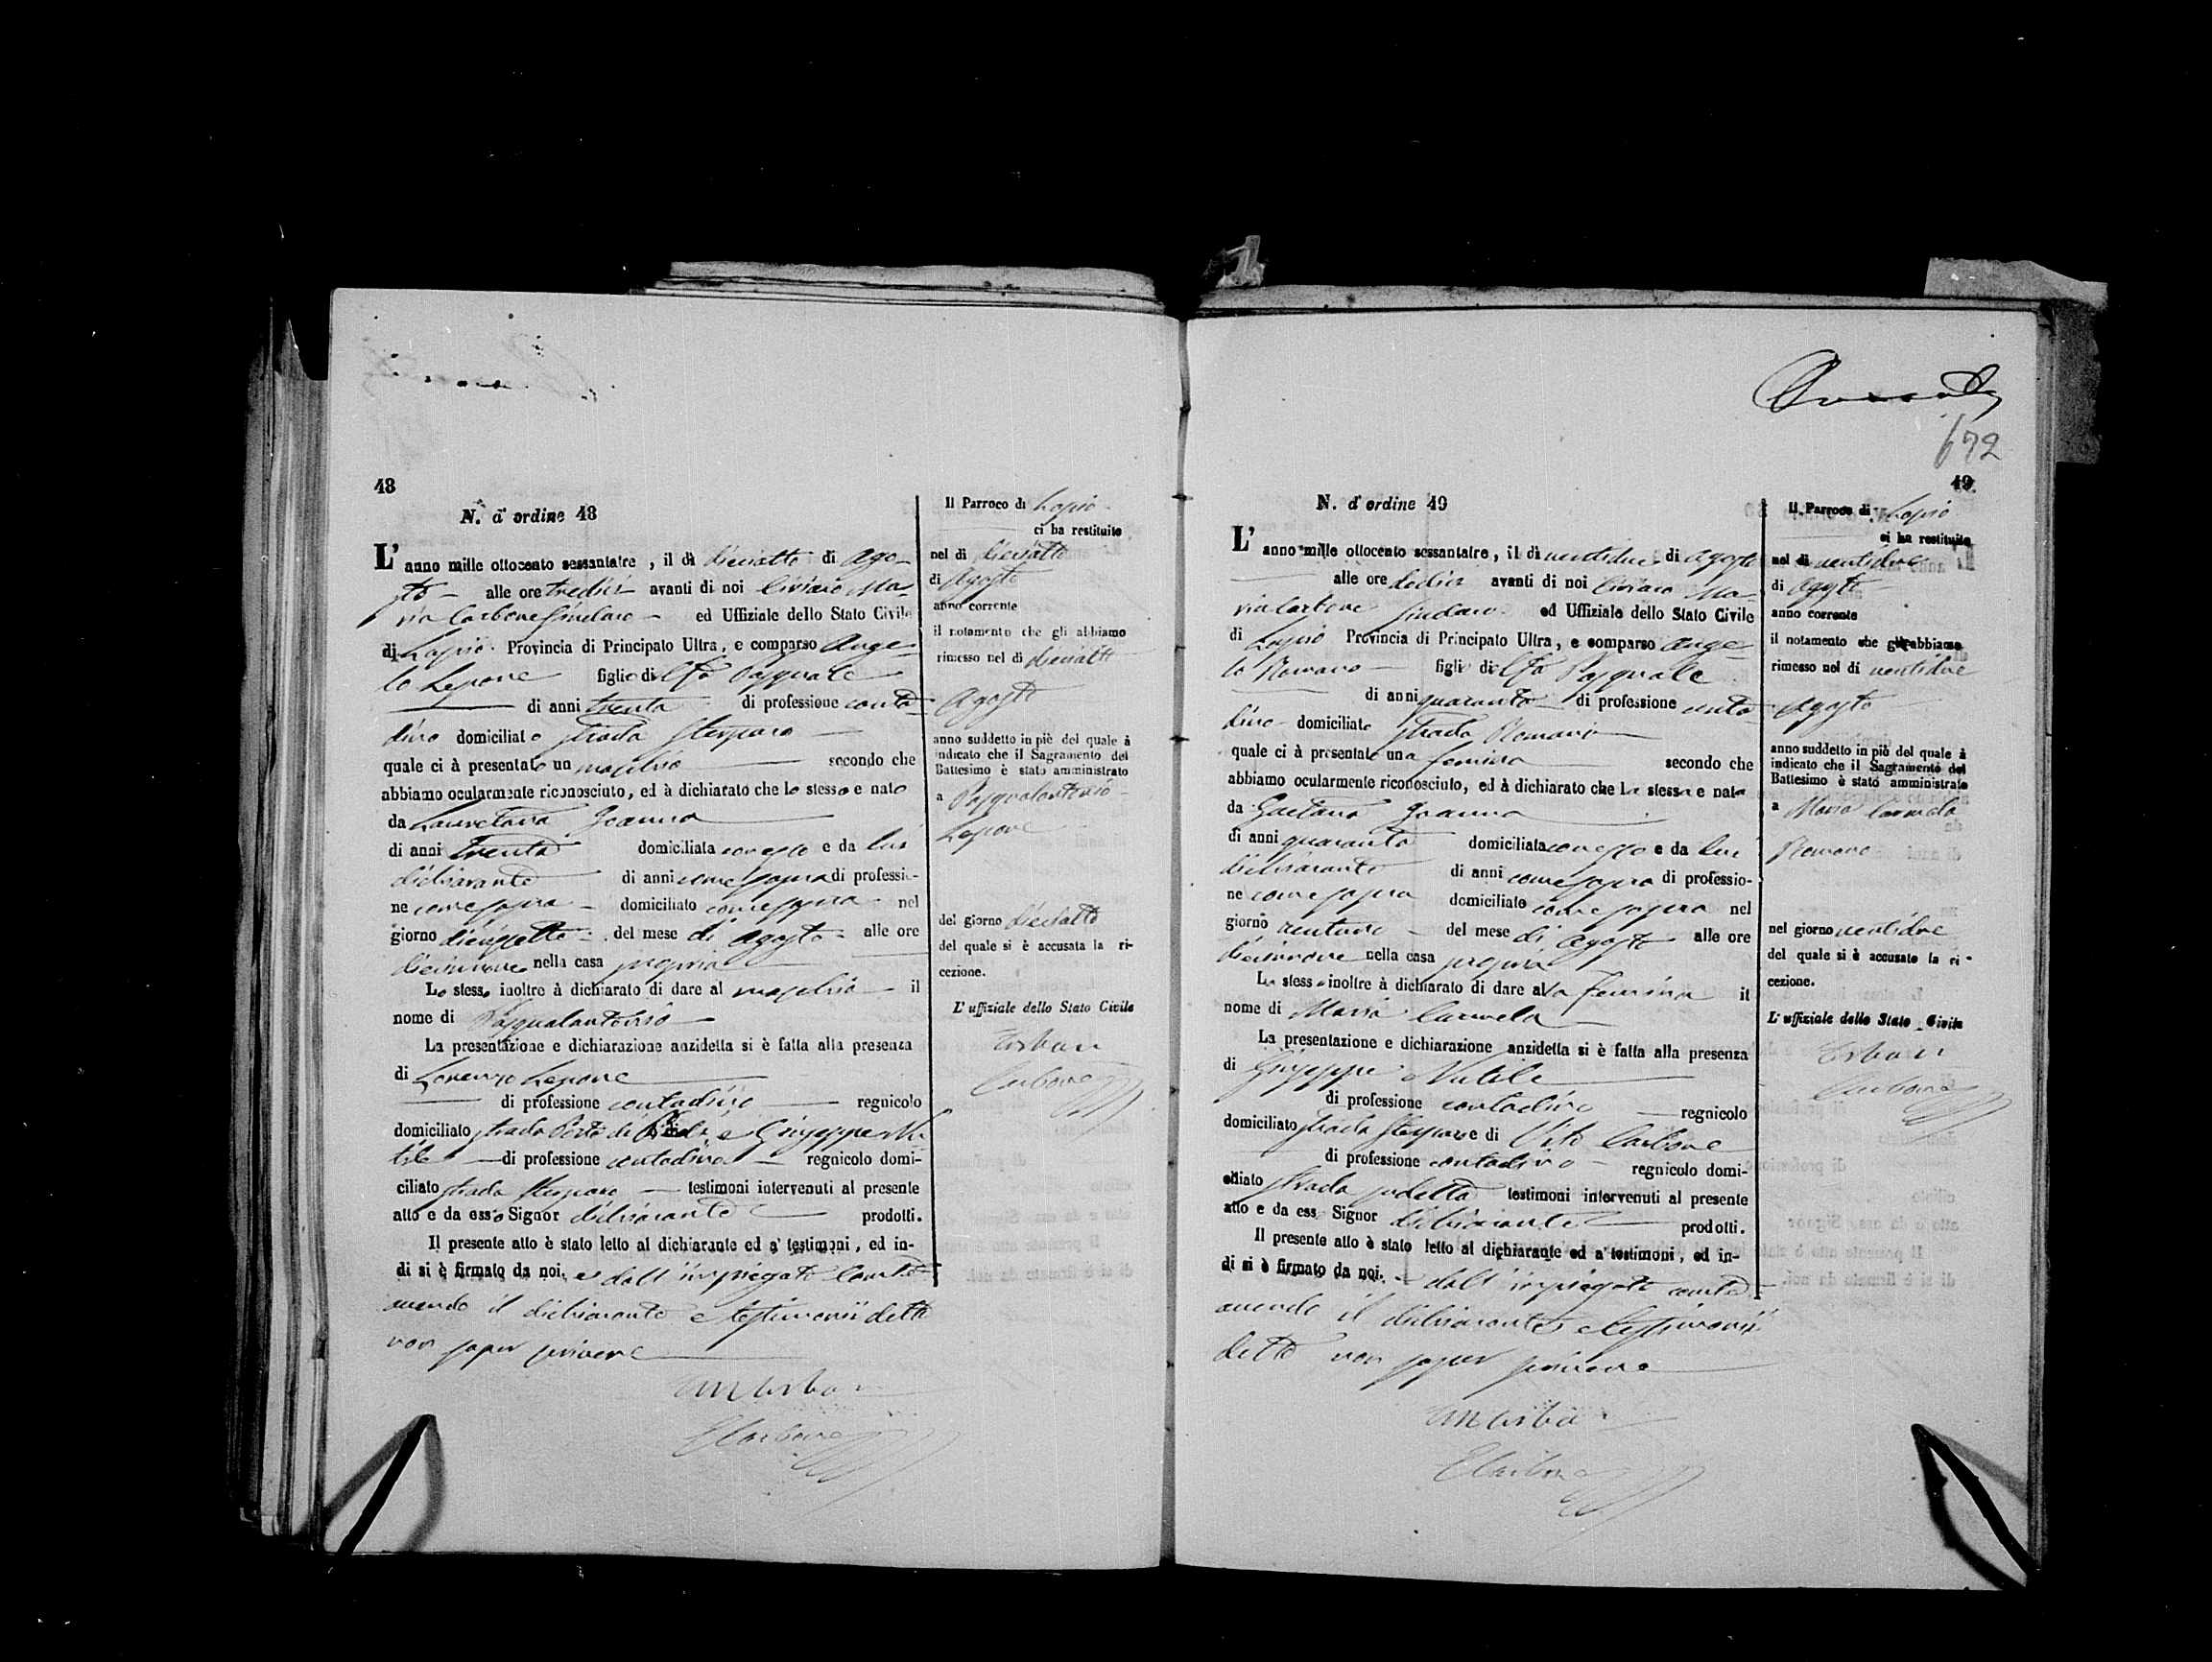 48
N. d'ordine 48
L'anno mille ottocento sessantatre, il dì dieciotto di Ago-
sto alle ore tredici avanti di noi Ma-
ria Carbone Sindaco ed Uffiziale dello Stato Civile
di Lapio Provincia di Principato Ultra, e comparso Ange-
lo Lepore figlio di Pasquale
di anni trenta di professione conta-
dino domiciliato strada
quale ci à presentato un maschio secondo che
abbiamo ocularmente riconosciuto, ed à dichiarato che lo stesso e nato
da Lauretana Joanna
di anni trenta domiciliata con esso e da lui
dichiarante di anni come sopra di professio-
ne come sopra domiciliato come sopra nel
giorno diecissette del mese di Agosto alle ore
diecinnove nella casa propria
Lo stesso inoltre à dichiarato di dare al maschio il
nome di Pasqualantonio
La presentazione e dichiarazione anzidetta si è fatta alla presenza
di Lorenzo Lepore
di professione contadino regnicolo
domiciliato strada e Giuseppe Nu-
tile di professione contadino regnicolo domi-
ciliato strada testimoni intervenuti al presente
atto e da esso Signor dichiarante prodotti.
Il presente atto è stato letto al dichiarante ed a' testimoni, ed in-
di si è firmato da noi, e dall'impiegato
avendo il dichiarante e testimonii detto
non saper scrivere
Carbone
Il Parroco di Lapio
ci ha restituito
nel dì dieciotto
di Agosto
anno corrente
il notamento che gli abbiamo
rimesso nel dì dieciotto
Agosto
anno suddetto in piè del quale à
indicato che il Sagramento del
Battesimo è stato amministrato
a Pasqualantonio
Lepore
del giorno dieciotto
del quale si è accusata la ri-
cezione.
L'uffiziale dello Stato Civile
Carbone
672
49
N. d'ordine 49
L'anno mille ottocento sessantatre, il dì ventidue di Agosto
alle ore dodici avanti di noi Ma-
ria Carbone Sindaco ed Uffiziale dello Stato Civile
di Lapio Provincia di Principato Ultra, e comparso Ange-
lo Romano figlio di Pasquale
di anni quaranta di professione conta-
dino domiciliato strada Romano
quale ci à presentato una femina secondo che
abbiamo ocularmente riconosciuto, ed à dichiarato che la stessa e nata
da Gaetana Joanna
di anni quaranta domiciliata con esso e da lui
dichiarante di anni come sopra di professio-
ne come sopra domiciliato come sopra nel
giorno ventuno del mese di Agosto alle ore
diecinnove nella casa propria
Lo stesso inoltre à dichiarato di dare alla femina il
nome di Maria Carmela
La presentazione e dichiarazione anzidetta si è fatta alla presenza
di Giuseppe Nutile
di professione contadino regnicolo
domiciliato strada e di Vito Carbone
di professione contadino regnicolo domi-
ciliato strada sudetta testimoni intervenuti al presente
atto e da ess Signor dichiarante prodotti.
Il presente atto è stato letto al dichiarante ed a' testimoni, ed in-
di si è firmato da noi, e dall'impiegato
avendo il dichiarante e testimonii
detto non saper scrivere
Carbone
Il Parroco di Lapio
ci ha restituito
nel dì ventidue
di Agosto
anno corrente
il notamento che gli abbiamo
rimesso nel dì ventidue
Agosto
anno suddetto in piè del quale à
indicato che il Sagramento del
Battesimo è stato amministrato
a Maria Carmela
Romano
nel giorno ventidue
del quale si è accusato la ri-
cezione.
L'uffiziale dello Stato Civile
Carbone